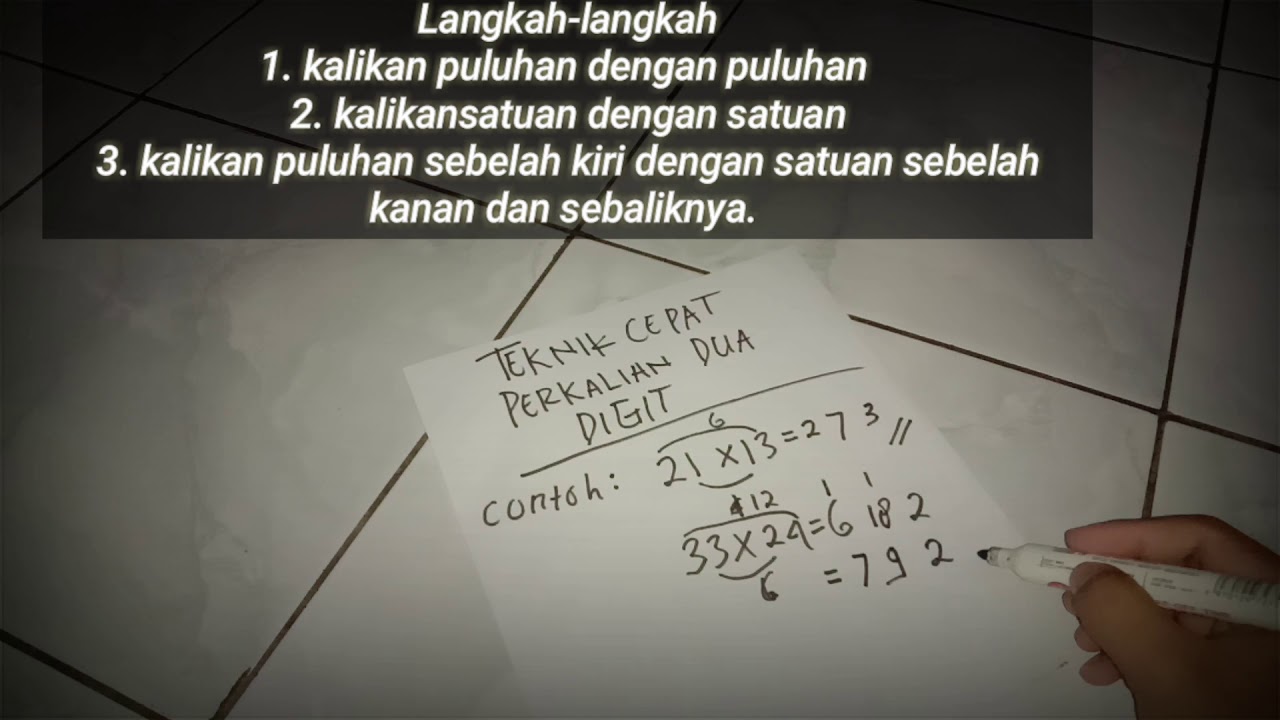 Langkah-langkah
1. kalikan puluhan dengan puluhan
2. kalikansatuan dengan satuan
3. kalikan puluhan sebelah kiri dengan satuan sebelah
kanan dan sebaliknya.
TEKNIK CEPAT
PERKALIAN DUA
DIGIT
6
contoh: 21 x 13 = 273 //
12 1 1
33 x 24 = 6 18 2
6 = 7 9 2